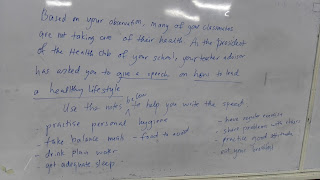 Based on your observation, many of your classmates
are not taking care of their health. As the president
of the Health Club of your school, your teacher advisor
has asked you to give a speech on how to lead
a healthy lifestyle
Use the notes below to help you write the speech
practise personal hygiene
- take balance meals - food to avoid
drink plain water
get adequate sleep
- have routine exercise
- share problems with others
- practise good